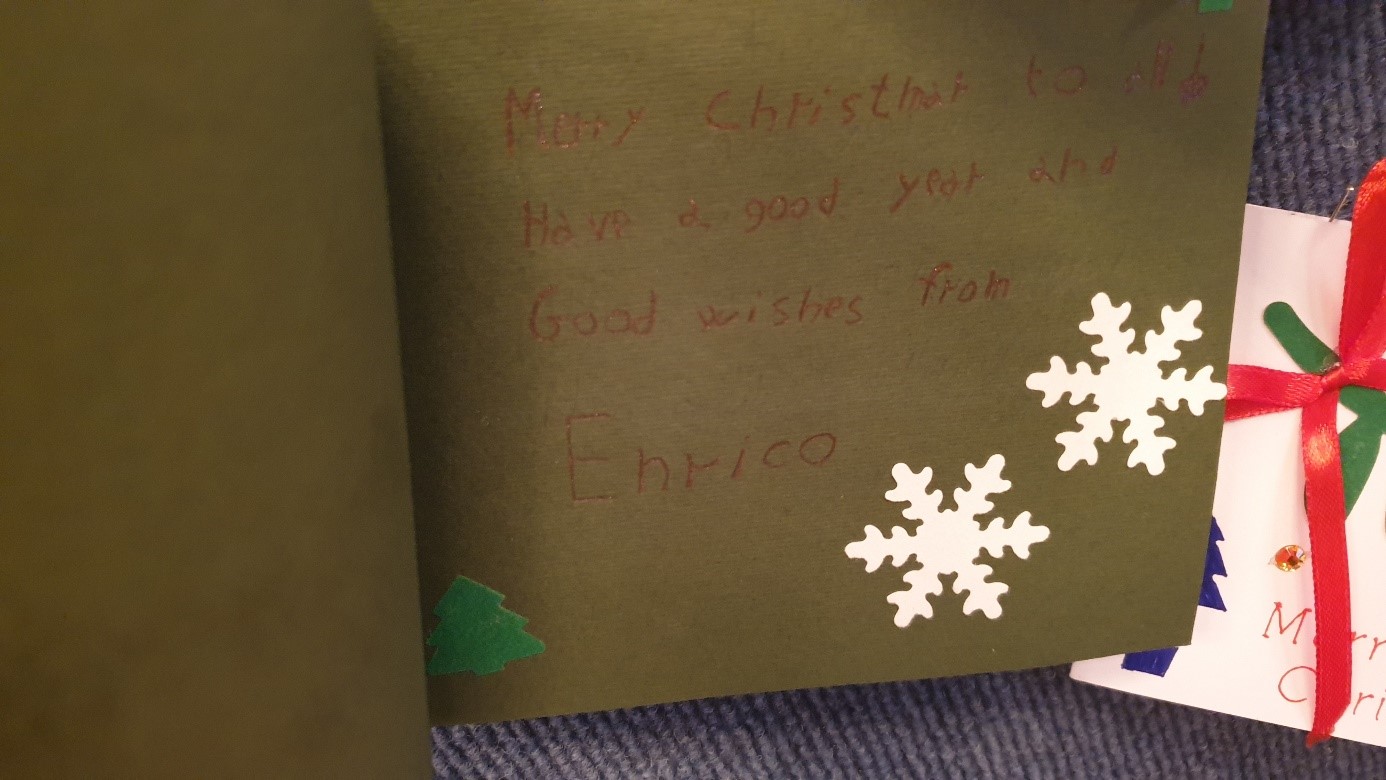 Merry Christmas to all!
Have a good year and
Good wishes from
Enrico
Merr
C ri